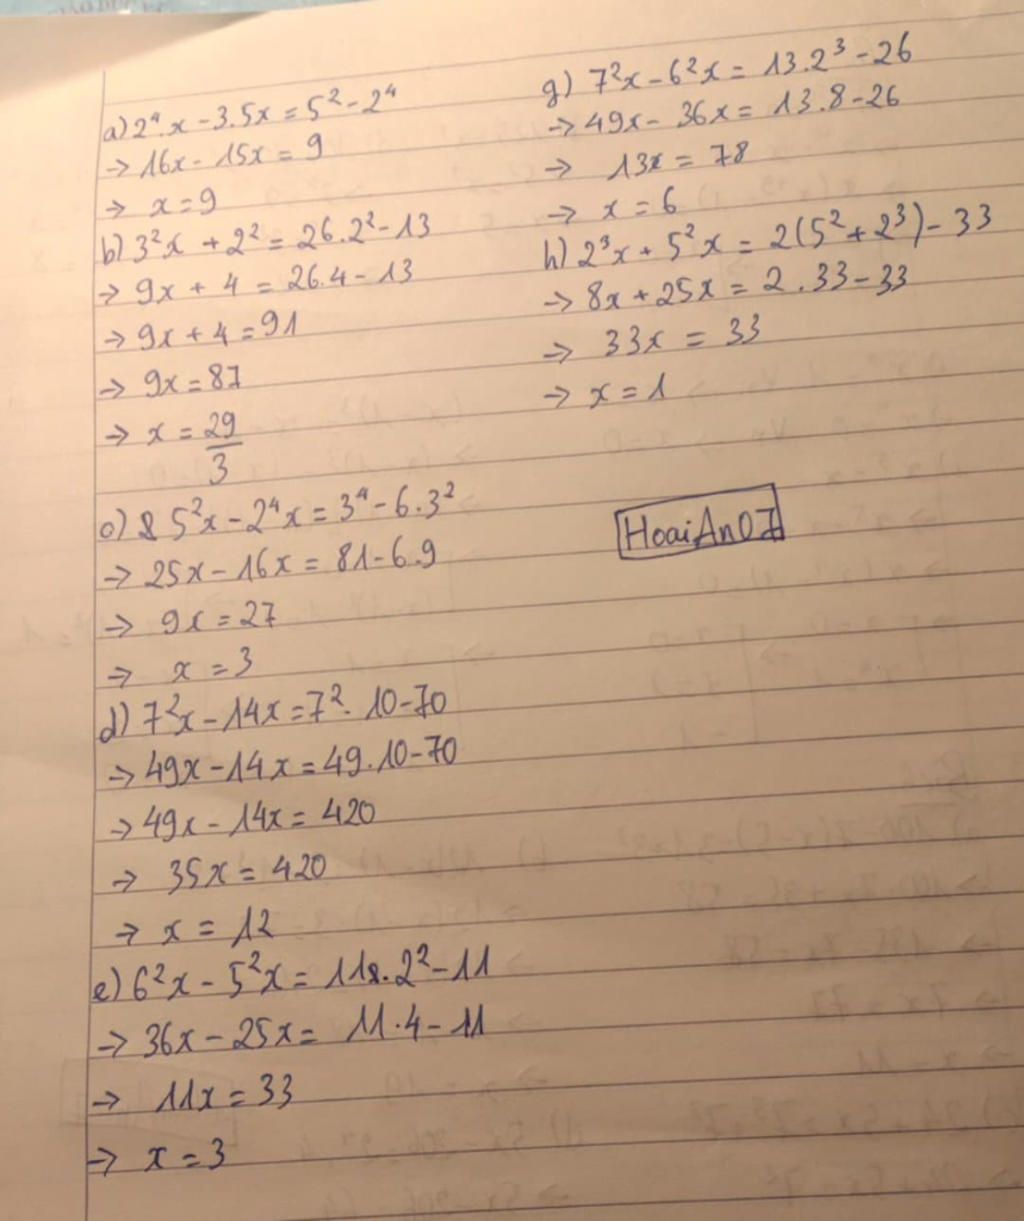 a) 2⁴.x - 3.5x = 5² - 2⁴
→ 16x - 15x = 9
→ x = 9
b) 3²x + 2² = 26.2² - 13
→ 9x + 4 = 26.4 - 13
→ 9x + 4 = 91
→ 9x = 87
→ x = 29/3
c) 5²x - 2⁴x = 3⁴ - 6.3²
→ 25x - 16x = 81 - 6.9
→ 9x = 27
→ x = 3
d) 7²x - 14x = 7². 10 - 70
→ 49x - 14x = 49.10 - 70
→ 49x - 14x = 420
→ 35x = 420
→ x = 12
e) 6²x - 5²x = 11.2² - 11
→ 36x - 25x = 11.4 - 11
→ 11x = 33
→ x = 3
g) 7²x - 6²x = 13.2³ - 26
→ 49x - 36x = 13.8 - 26
→ 13x = 78
→ x = 6
h) 2³x + 5²x = 2(5² + 2³) - 33
→ 8x + 25x = 2.33 - 33
→ 33x = 33
→ x = 1
HoaiAn07